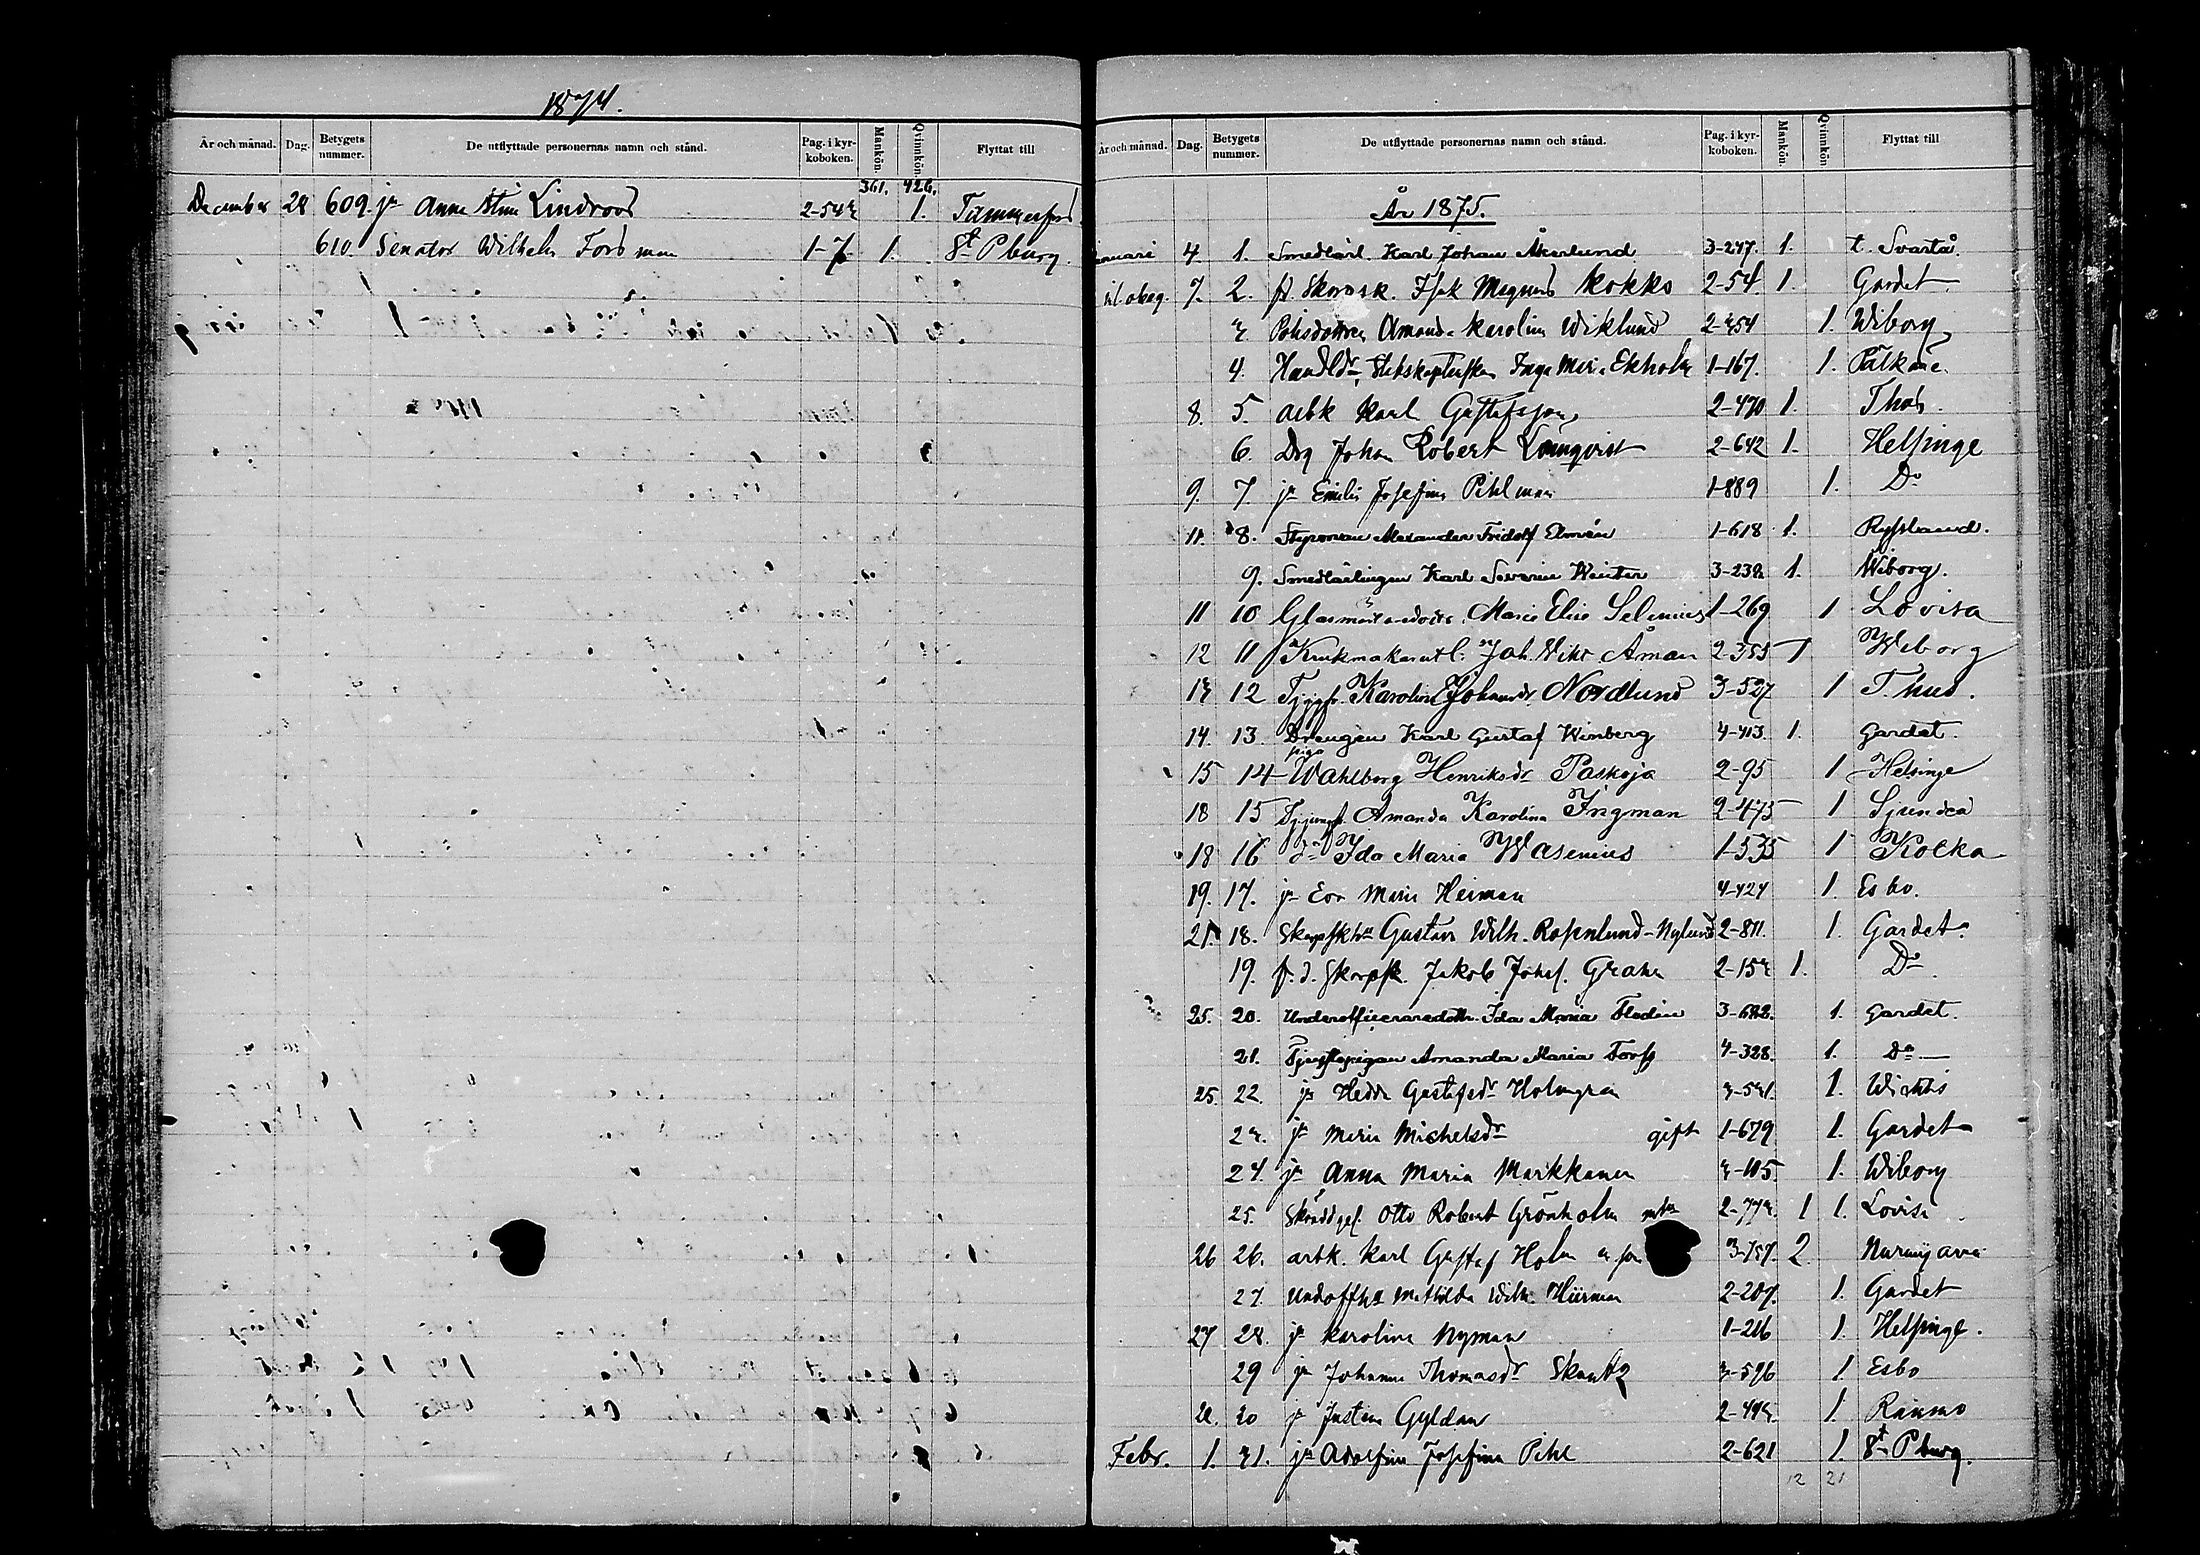 1874.
År och månad. Dag. Betygets nummer. De utflyttade personernas namn och stånd. Pag. i kyrkoboken. Mankön. Qvinnkön. Flyttat till
361. 426.
December 28 609. jn Anna Stina Lindroos 1. Tammerfors
610. Senator Wilhelm Forsman 1-7 1. St Pburg.
År och månad. Dag. Betygets nummer. De utflyttade personernas namn och stånd. Pag. i kyrkoboken. Mankön. Qvinnkön. Flyttat till
År 1875.
4 1. Smedlärl. Karl Johan Åkerlund 3-247. 1. t. Svartå.
7. 2. Isak Magnus Kokko 2-54. 1. Gardet.
3. Amanda Karolina Wiklund 1. Wiborg
4. Maria Ekholm 1-167. 1. Pälkäne.
8. 5. Arbk Karl Gustafsson 2-470 1.
6. Drg Johan Robert Lönnqvist 2-642 1. Helsinge
9. 7. jn Emilia Josefina Pihlman 1-889 1. Do
11. 8. Styrman Alexander Fridolf Elmén 1-618 1. Ryssland.
9. Smedlärlingen Karl Severin Winter 3-232 1. Wiborg.
11 10 Glasmäst.edottr. Maria Elise Selenius 1-269 1 Lovisa
12 11 Krukmakarel. Joh. Vikt Åman 2-353 1 Wiborg
13 12 Karolina Johansdr Nordlund 3-527 1 T. hus.
14. 13. Drengen Karl Gustaf Winberg 4-413. 1. Gardet.
15 14 piga Wahlborg Henriksdr Paskoja 2-95 1 Helsinge
18 15 Tjjungf. Amanda Karolina Ingman 2-475 1 Sjundeå
18 16 Do Ida Maria Wasenius 1-535 1 Kotka
19. 17. jn Eva Maria Heiman 4-424 1. Esbo.
21. 18. Gustava Wilh. Rosenlund-Nylund 2-811. 1. Gardet.
19. f.d. Skarpsk. Jakob Johaf. Grahn 2-153 1. Do
25. 20. Underofficersdottr. Ida Maria Flodin 3-682. 1. Gardet.
21. Tjenstepigan Amanda Maria Forss 4-328. 1. Do
25. 22. jn Hedda Gustafsdr Holmgren 3-531. 1. Wichtis
23. jn Maria Michelsdr gift 1-679 1. Gardet
24. jn Anna Maria Markkanen 3-105 1. Wiborg
25. Skräddgef. Otto Robert Grönholm 2-773. 1 1. Lovisa
26 26. arbk. Karl Gustaf Holm 3-757. 2. Nurmijärvi
27. Undoffhu Mathilda Wilh. Hiirman 2-207. 1. Gardet
27 28 jn Karolina Nyman 1-216 1. Helsinge.
29 jn Johanna Thomasdr Skantz 3-596 1 Esbo
28. 30 jn Justina Gyldan 1. Raumo
Febr. 1. 31. jn Adolfina Josefina Pihl 2-621 1. St Pburg.
12 21